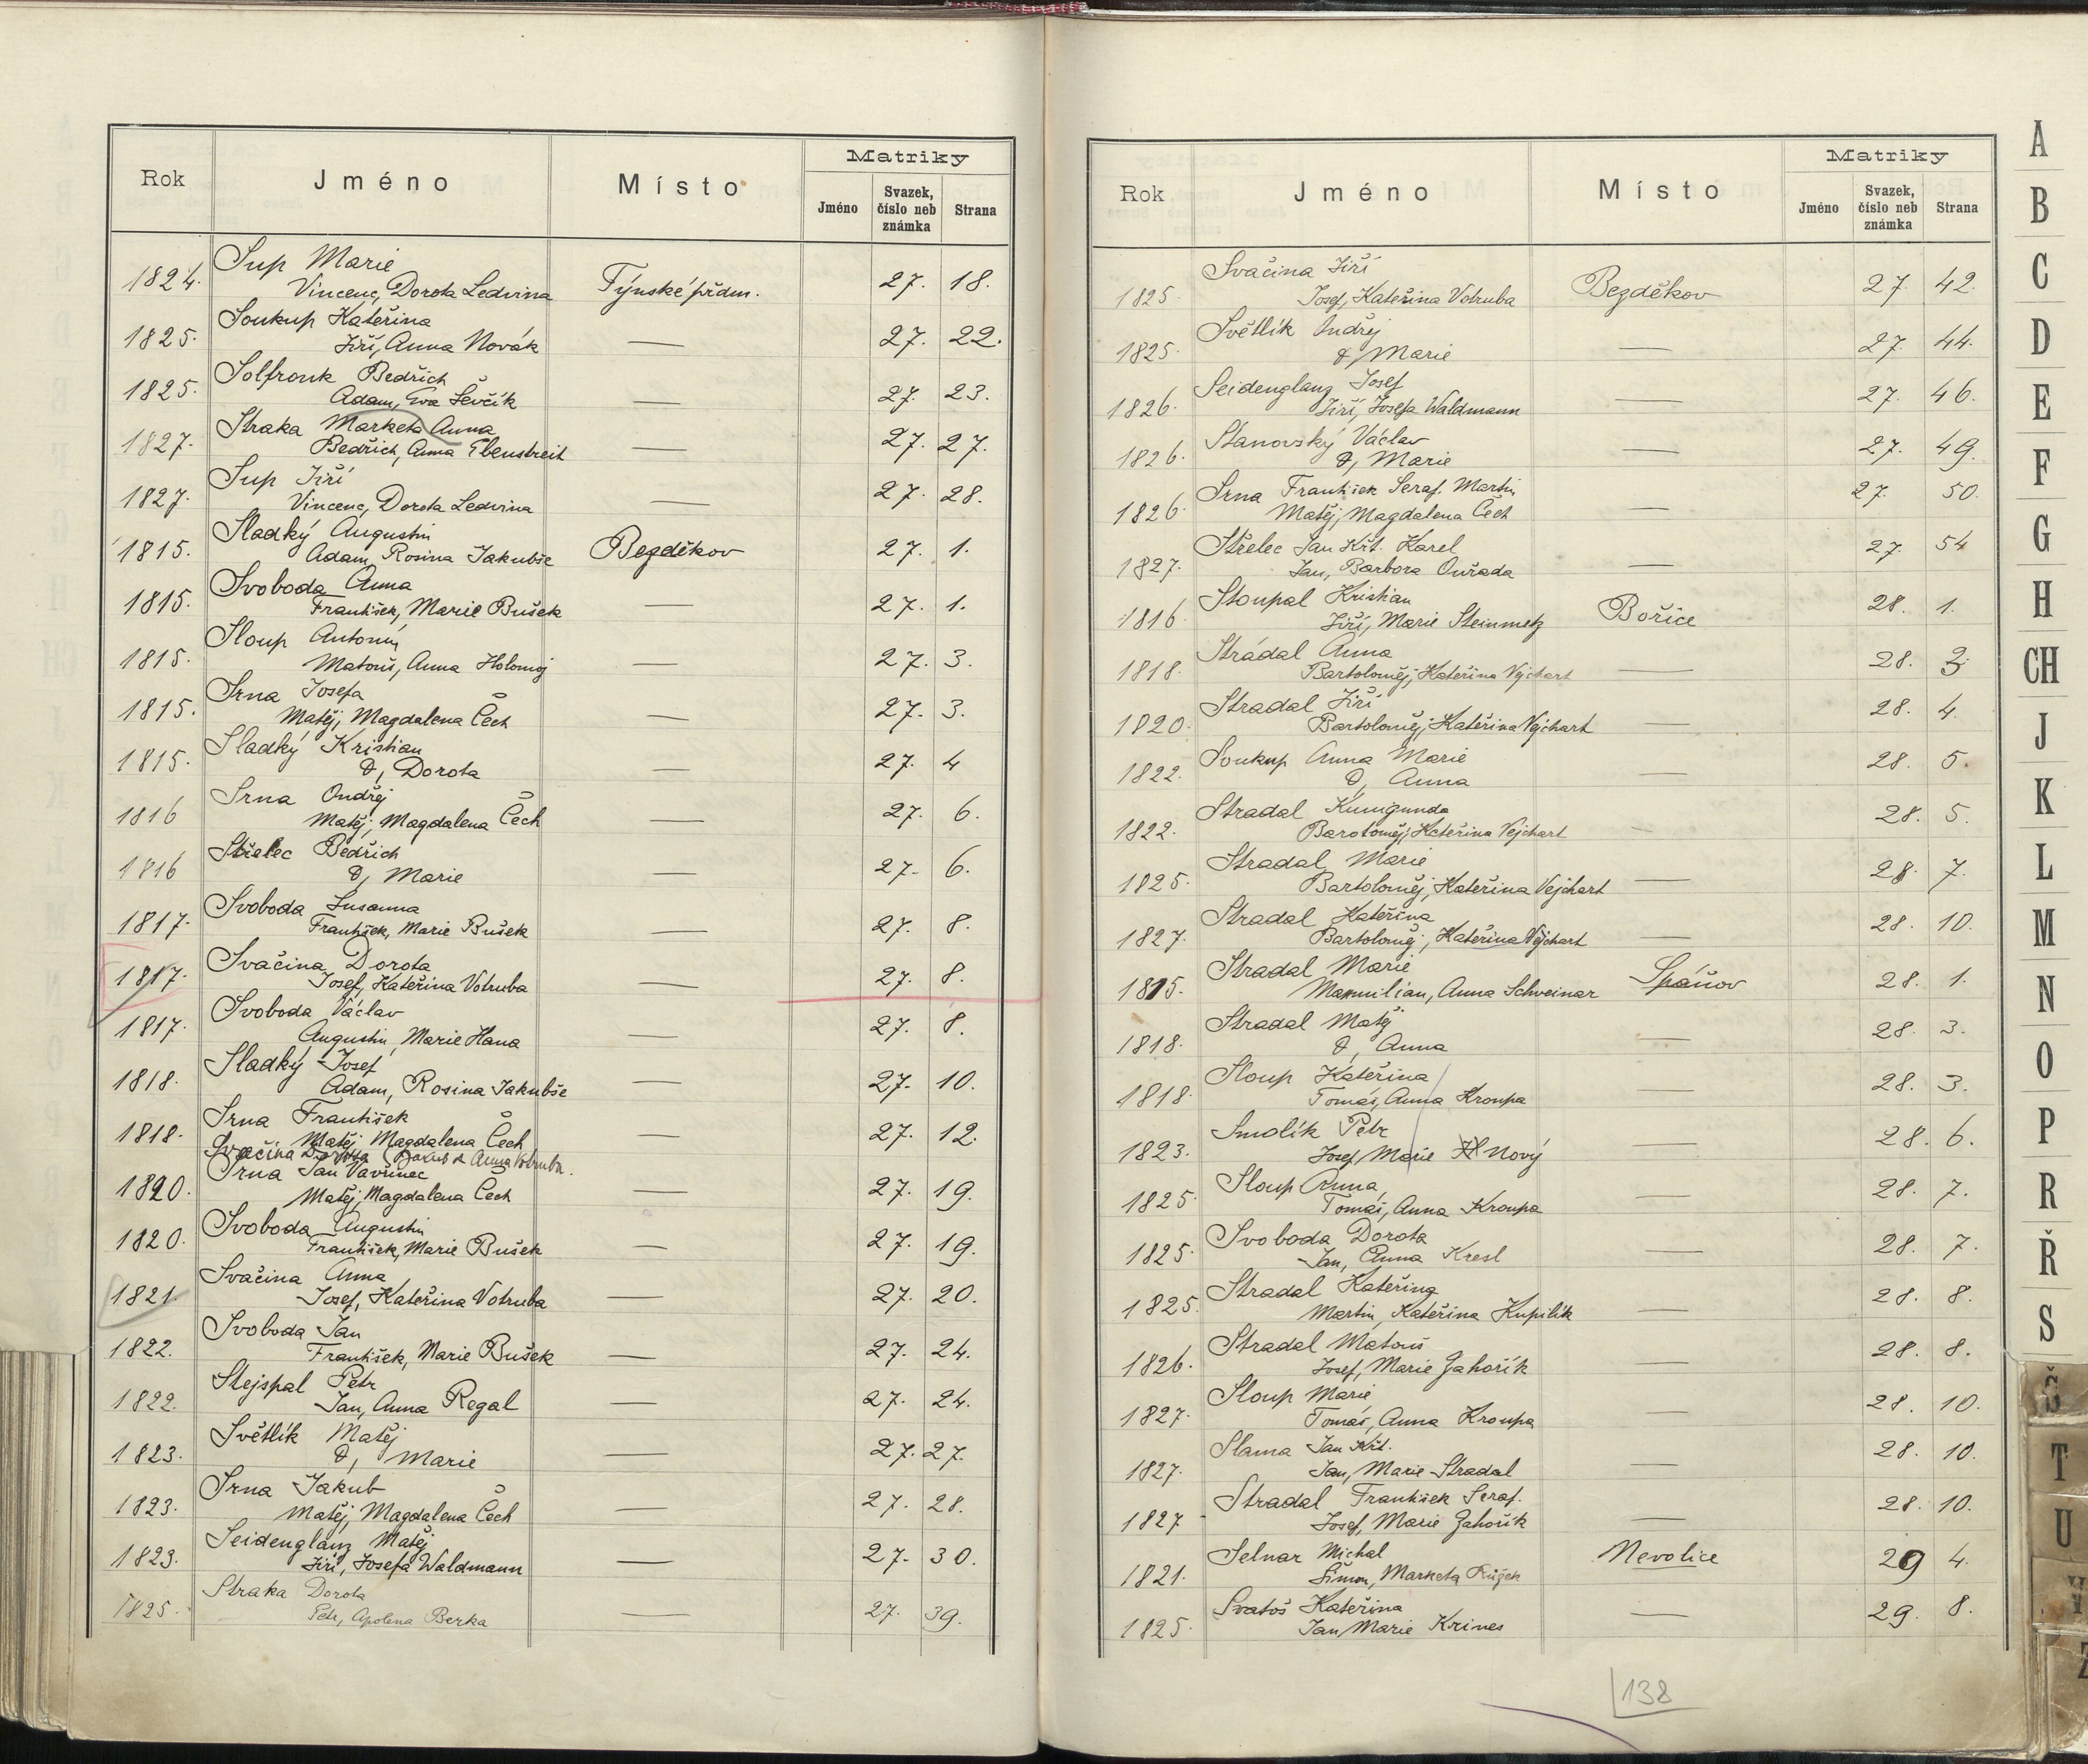 Rok Jméno Místo Matriky
Jméno Svazek, číslo neb známka Strana
Sup Marie
1824. Vincenc, Dorota Ledvina Týnské předm. 27. 18.
Soukup Kateřina
1825. Jiří, Anna Novák — 27. 22.
Solfronk Bedřich
1825. Adam, Eva Ševčík — 27. 23.
Straka Marketa Anna
1827. Bedřich, Anna Ebenstreit — 27. 27.
Sup Jiří
1827. Vincenc, Dorota Ledvina — 27. 28.
Sladký Augustin
1815. Adam, Rosina Jakubše Bezděkov 27. 1.
Svoboda Anna
1815. František, Marie Bušek — 27. 1.
Sloup Antonín
1815. Matouš, Anna Holomoj — 27. 3.
Srna Josefa
1815. Matěj, Magdalena Čech — 27. 3.
Sladký Kristian
1815. O, Dorota — 27. 4
Srna Ondřej
1816 Matěj, Magdalena Čech — 27. 6.
Střelec Bedřich
1816 O, Marie — 27. 6.
Svoboda Susanna
1817. František, Marie Bušek — 27. 8.
Svačina Dorota
1817. Josef, Kateřina Votruba — 27. 8.
Svoboda Václav
1817. Augustin, Marie Hana — 27. 8.
Sladký Josef
1818. Adam, Rosina Jakubše — 27. 10.
Srna František
1818. Matěj Magdalena Čech — 27. 12.
Svačina Dorota (Jakub a Anna Votruba.
Srna Jan Vavřinec
1820. Matěj, Magdalena Čech — 27. 19.
Svoboda Augustin
1820. František, Marie Bušek — 27. 19.
Svačina Anna
1821. Josef, Kateřina Votruba — 27. 20.
Svoboda Jan
1822. František, Marie Bušek — 27. 24.
Stejspal Petr
1822. Jan, Anna Regal — 27. 24.
Světlík Matěj
1823. O, Marie — 27. 27.
Srna Jakub
1823. Matěj, Magdalena Čech — 27. 28.
Seidenglanz Matěj
1823. Jiří, Josefa Waldmann — 27. 30.
Straka Dorota
1825. Petr, Apolena Berka — 27. 39.
Rok Jméno Místo Matriky
Jméno Svazek, číslo neb známka Strana
Svačina Jiří
1825. Josef, Kateřina Votruba Bezděkov 27. 42.
Světlík Ondřej
1825. O, Marie — 27. 44.
Seidenglanz Josef
1826. Jiří, Josefa Waldmann — 27. 46.
Stanovský Václav
1826. O, Marie — 27. 49.
Srna František Seraf. Martin
1826. Matěj, Magdalena Čech — 27. 50.
Střelec Jan Křt. Karel
1827. Jan, Barbora Ouřada — 27. 54
Stoupal Kristian
1816 Jiří, Marie Steinmetz Bořice 28. 1.
Strádal Anna
1818. Bartoloměj, Kateřina Vejchart — 28. 3.
Stradal Jiří
1820. Bartoloměj, Kateřina Vejchart — 28. 4.
Soukup Anna Marie
1822. O, Anna — 28. 5.
Stradal Kunigunda
1822. Barotoměj, Kateřina Vejchart — 28. 5.
Stradal Marie
1825. Bartoloměj, Kateřina Vejchart — 28. 7.
Stradal Kateřina
1827. Bartoloměj, Kateřina Vejchart — 28. 10.
Stradal Marie
1815. Maxmilian, Anna Schweinar Spáňov 28. 1.
Stradal Matěj
1818. O, Anna — 28. 3.
Sloup Kateřina
1818. Tomáš, Anna Kroupa — 28. 3.
Smolík Petr
1823. Josef, Marie Nový — 28. 6.
Sloup Anna
1825. Tomáš, Anna Kroupa — 28. 7.
Svoboda Dorota
1825. Jan, Anna Kresl — 28. 7.
Stradal Kateřina
1825. Martin, Kateřina Kupilík — 28. 8.
Stradal Matouš
1826. Josef, Marie Zahořík — 28. 8.
Sloup Marie
1827. Tomáš, Anna Kroupa — 28. 10.
Slama Jan Křt.
1827. Jan, Marie Stradal — 28. 10.
Stradal František Seraf.
1827 Josef, Marie Zahořík — 28. 10.
Selnar Michal
1821. Šimon, Marketa Růžek Nevolice 29 4.
Svatoš Kateřina
1825. Jan, Marie Krines — 29. 8.
138
A
B
C
D
E
F
G
H
CH
J
K
L
M
N
O
P
R
Ř
S
Š
T
U
V
Z